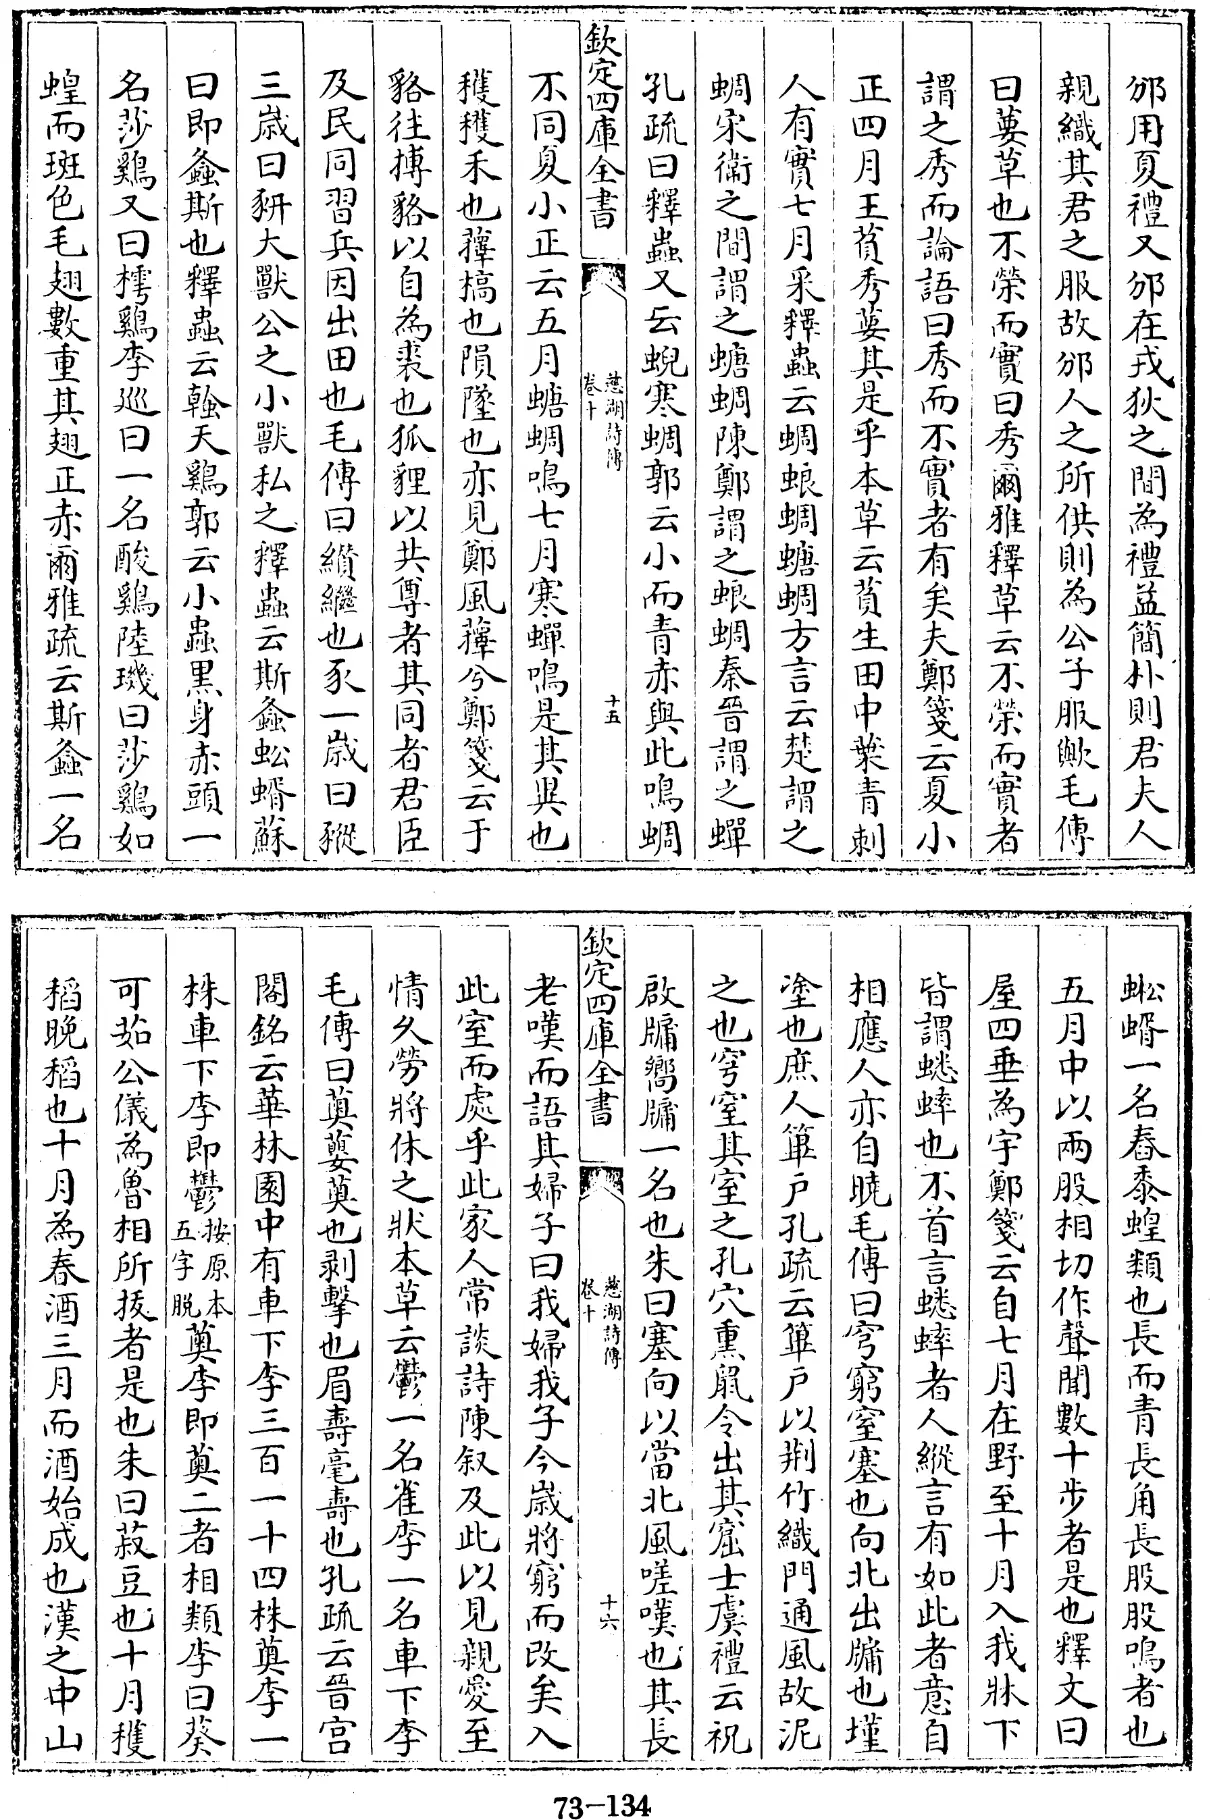 邠用夏禮又邠在戎狄之間為禮益簡朴則君夫人
親織其君之服故邠人之所供則為公子服歟毛傳
曰葽草也不榮而實曰秀爾雅釋草云不榮而實者
謂之秀而論語曰秀而不實者有矣夫鄭箋云夏小
正四月王萯秀葽其是乎本草云萯生田中葉青刺
人有實七月采釋蟲云蜩蜋蜩螗蜩方言云楚謂之
蜩宋衛之間謂之螗蜩陳鄭謂之蜋蜩秦晉謂之蟬
孔疏曰釋蟲又云蜺寒蜩郭云小而青赤與此鳴蜩
欽定四庫全書
慈湖詩傳
卷十
十五
不同夏小正云五月螗蜩鳴七月寒蟬鳴是其異也
穫穫禾也蘀槁也隕墜也亦見鄭風蘀兮鄭箋云于
貉往搏貉以自為裘也狐貍以共尊者其同者君臣
及民同習兵因出田也毛傳曰纘繼也豕一歲曰豵
三歲曰豣大獸公之小獸私之釋蟲云斯螽蚣蝑蘇
曰即螽斯也釋蟲云螒天鷄郭云小蟲黑身赤頭一
名莎鷄又曰樗鷄李巡曰一名酸鷄陸璣曰莎鷄如
蝗而斑色毛翅數重其翅正赤爾雅疏云斯螽一名
蜙蝑一名舂黍蝗類也長而青長角長股股鳴者也
五月中以兩股相切作聲聞數十步者是也釋文曰
屋四垂為宇鄭箋云自七月在野至十月入我牀下
皆謂蟋蟀也不首言蟋蟀者人縱言有如此者意自
相應人亦自曉毛傳曰穹窮窒塞也向北出牖也墐
塗也庶人篳戶孔疏云篳戶以荆竹織門通風故泥
之也穹窒其室之孔穴熏鼠令出其窟士虞禮云祝
啟牖嚮牖一名也朱曰塞向以當北風嗟嘆也其長
欽定四庫全書
慈湖詩傳
卷十
十六
老嘆而語其婦子曰我婦我子今歲將窮而改矣入
此室而處乎此家人常談詩陳叙及此以見親愛至
情久勞將休之狀本草云鬱一名雀李一名車下李
毛傳曰薁蘡薁也剥擊也眉壽毫壽也孔疏云晉宫
閣銘云華林園中有車下李三百一十四株薁李一
株車下李即鬱按原本五字脱薁李即薁二者相類李曰葵
可茹公儀為魯相所拔者是也朱曰菽豆也十月穫
稻晚稻也十月為春酒三月而酒始成也漢之中山
73-134